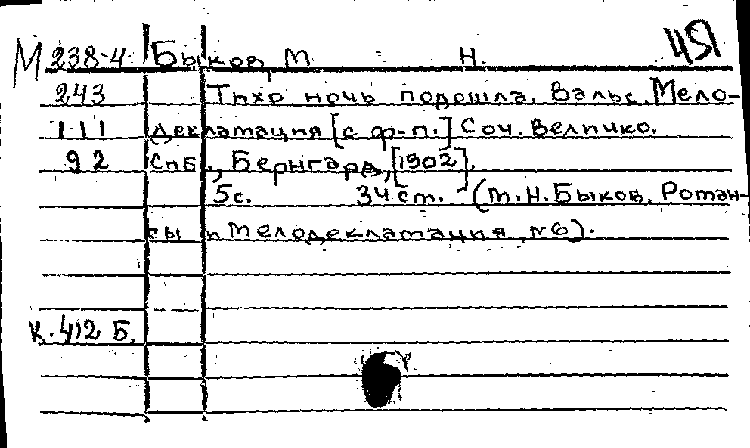 451
М 238-4 Быков, М. Н.
243 Тихо ночь подошла. Вальс. Мело-
111 декламация [с ф-п.] Соч. Величко.
92 Спб., Бернгард, [1902].
5с. 34 см. - (М.Н. Быков. Роман-
сы и мелодекламация, №6).
К. 412 Б.